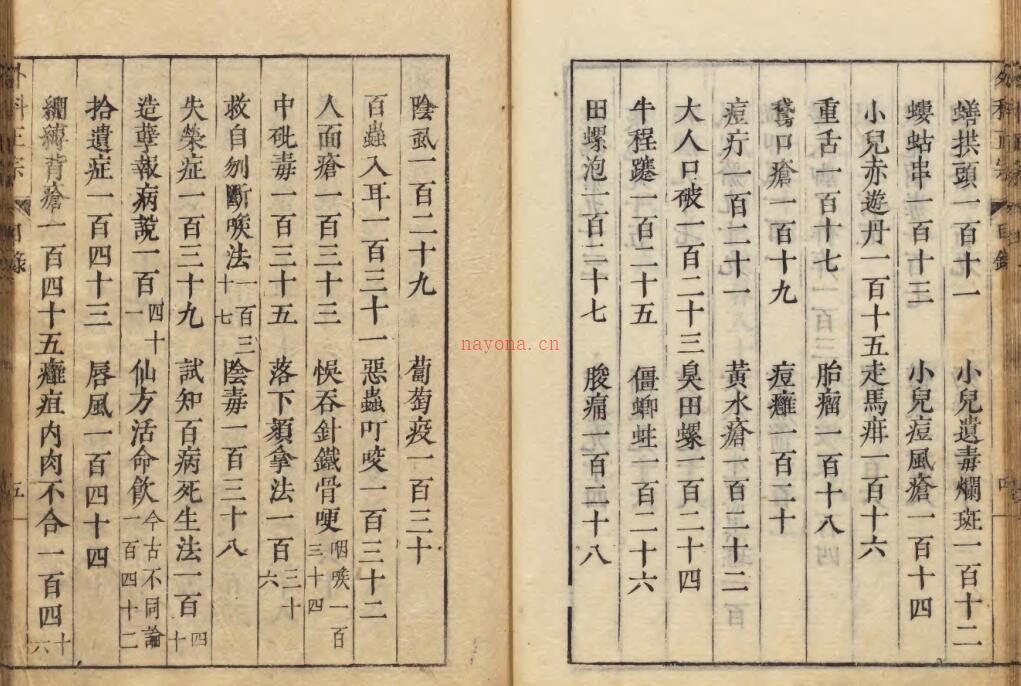 蟮拱頭一百十一 小兒遺毒爛斑一百十二
螻蛄串一百十三 小兒痘風瘡一百十四
小兒赤遊丹一百十五走馬疳一百十六
重舌一百十七 胎瘤一百十八
鵞口瘡一百十九 痘癰一百二十
痘疔一百二十一 黃水瘡一百二十二
大人口破一百二十三臭田螺一百二十四
牛程蹇一百二十五 僵螂蛀一百二十六
田螺泡一百二十七 肢痛一百二十八
外科正宗 目錄 五
陰虱一百二十九 葡萄疫一百三十
百蟲入耳一百三十一惡蟲叮咬一百三十二
人面瘡一百三十三 悞吞針鐵骨哽咽喉一百三十四
中砒毒一百三十五 落下頦拿法一百三十六
救自刎斷喉法一百三十七 陰毒一百三十八
失榮症一百三十九 試知百病死生法一百四十
造孽報病說一百四十一 仙方活命飲今古不同論一百四十二
拾遺症一百四十三 唇風一百四十四
背瘡一百四十五癰疽內肉不合一百四十六
外科正宗 目錄
nayona.cn